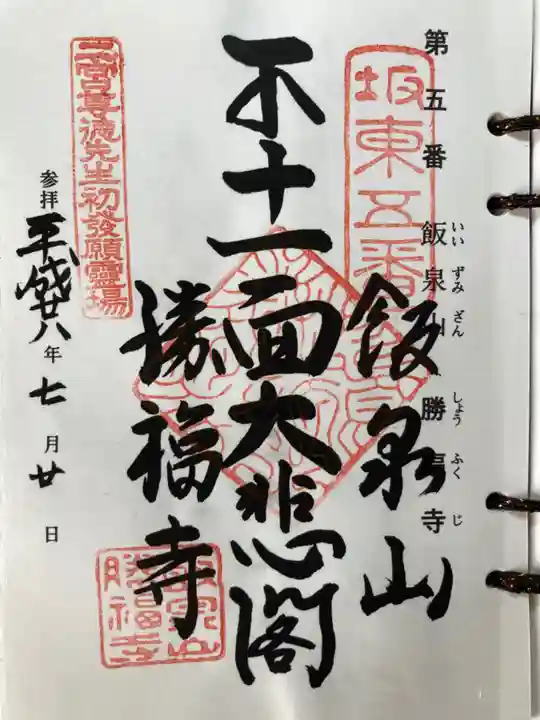 第五番 飯泉山 勝福寺
いいずみざん しょうふくじ
坂東五番
飯泉山
十一面大悲閣
勝福寺
二宮尊徳先生初發願靈場
参拝 平成廿八年七月廿日
勝福寺